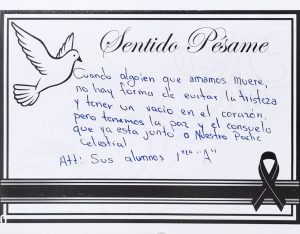 Sentido Pésame
Cuando alguien que amamos muere,
no hay forma de evitar la tristeza
y tener un vacio en el corazón,
pero tenemos la paz y el consuelo
que ya esta junto a Nuestro Padre
Celestial
Att: Sus alumnos 1ero "A"